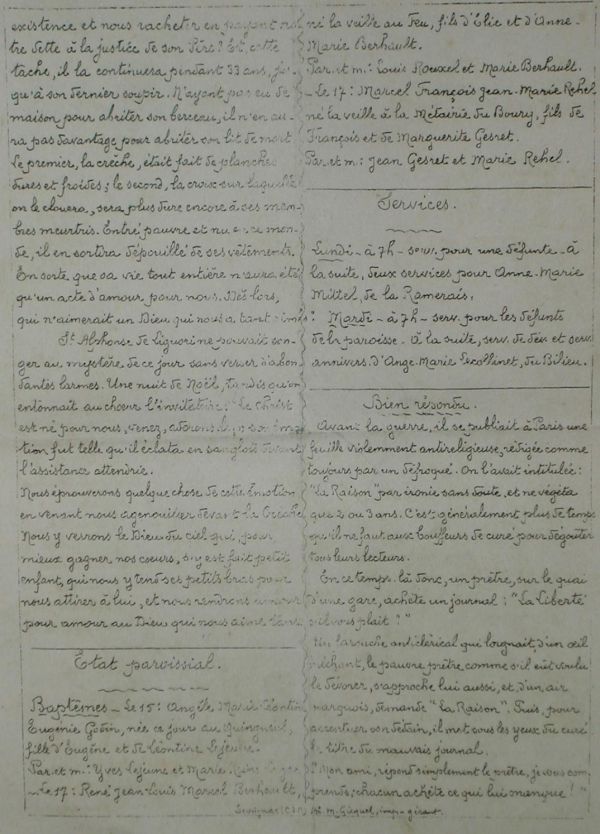 existence et nous racheter en payant no-
tre dette à la justice de son Père? Et, cette
tâche, il la continuera pendant 33 ans, jus-
qu'à son dernier soupir. N'ayant pas eu de
maison pour abriter son berceau, il n'en au-
ra pas davantage pour abriter son lit de mort.
le premier, la crèche, était fait de planches
dures et froides; le second, la croix sur laquelle
on le clouera, sera plus dure encore à ses mem-
bres meurtris. Entré pauvre et nu en ce mon-
de, il en sortira dépouillé de ses vêtements.
En sorte que sa vie tout entière n'aura été
qu'un acte d'amour pour nous. Dès lors,
qui n'aimerait un Dieu qui nous a tant aimés
St Alphonse de Liguori ne pouvait son-
ger au mystère de ce jour sans verser d'abon-
dantes larmes. Une nuit de Noël, tandis qu'on
entonnait au chœur l'invitatoire: "Le Christ
est né pour nous, venez, adorons-le", son émo-
tion fut telle qu'il éclata en sanglots devant
l'assistance attendrie.
Nous éprouverons quelque chose de cette émotion
en venant nous agenouiller devant la Crèche
Nous y verrons le Dieu du ciel qui, pour
mieux gagner nos cœurs, s'y est fait petit
enfant, qui nous y tend ses petits bras pour
nous attirer à lui, et nous rendrons amour
pour amour au Dieu qui nous aime tant.
Etat paroissial.
Baptêmes - Le 15: Angèle Marie Léontine
Eugénie Gobin, née ce jour au Quingueul,
fille d'Eugène et de Léontine Lejeune.
Par. et m: Yves Lejeune et Marie
- Le 17: René Jean-Louis Marcel Berhault,
né la veille au Feu, fils d'Elie et d'Anne-
Marie Berhault.
Par. et m.: Louis Rouxel et Marie Berhault.
- Le 17: Marcel François Jean-Marie Rehel
né la veille à la Métairie du Bourg, fils de
François et de Marguerite Gesret.
Par. et m: Jean Gesret et Marie Rehel.
Services.
Lundi - à 7h - serv. pour une défunte - à
la suite, deux services pour Anne-Marie
Mittel, de la Ramerais.
Mardi - à 7h - serv. pour les défunts
de la paroisse. à la suite, serv. de deix et serv.
annivers. d'Ange-Marie Lecollinet, du Bilieu.
Bien répondu.
Avant la guerre, il se publiait à Paris une
feuille violemment antireligieuse, rédigée comme
toujours par un défroqué. On l'avait intitulée:
"la Raison" par ironie sans doute, et ne végéta
que 2 ou 3 ans. C'est généralement plus de temps
qu'il ne faut aux bouffeurs de curé pour dégoûter
tous leurs lecteurs.
En ce temps-là donc, un prêtre, sur le quai
d'une gare, achète un journal: "La Liberté
s'il vous plaît?"
Un farouche anticlérical qui lorgnait, d'un œil
méchant, le pauvre prêtre comme s'il eût voulu
le dévorer, s'approche lui aussi, et d'un air
narquois, demande "la Raison". Puis, pour
accentuer son dédain, il met sous les yeux du curé
le titre du mauvais journal.
"Mon ami, répond simplement le prêtre, je vous com-
prends; chacun achète ce qui lui manque!"
Sévignac (C.d.N) M. Gicquel, imp-gérant.